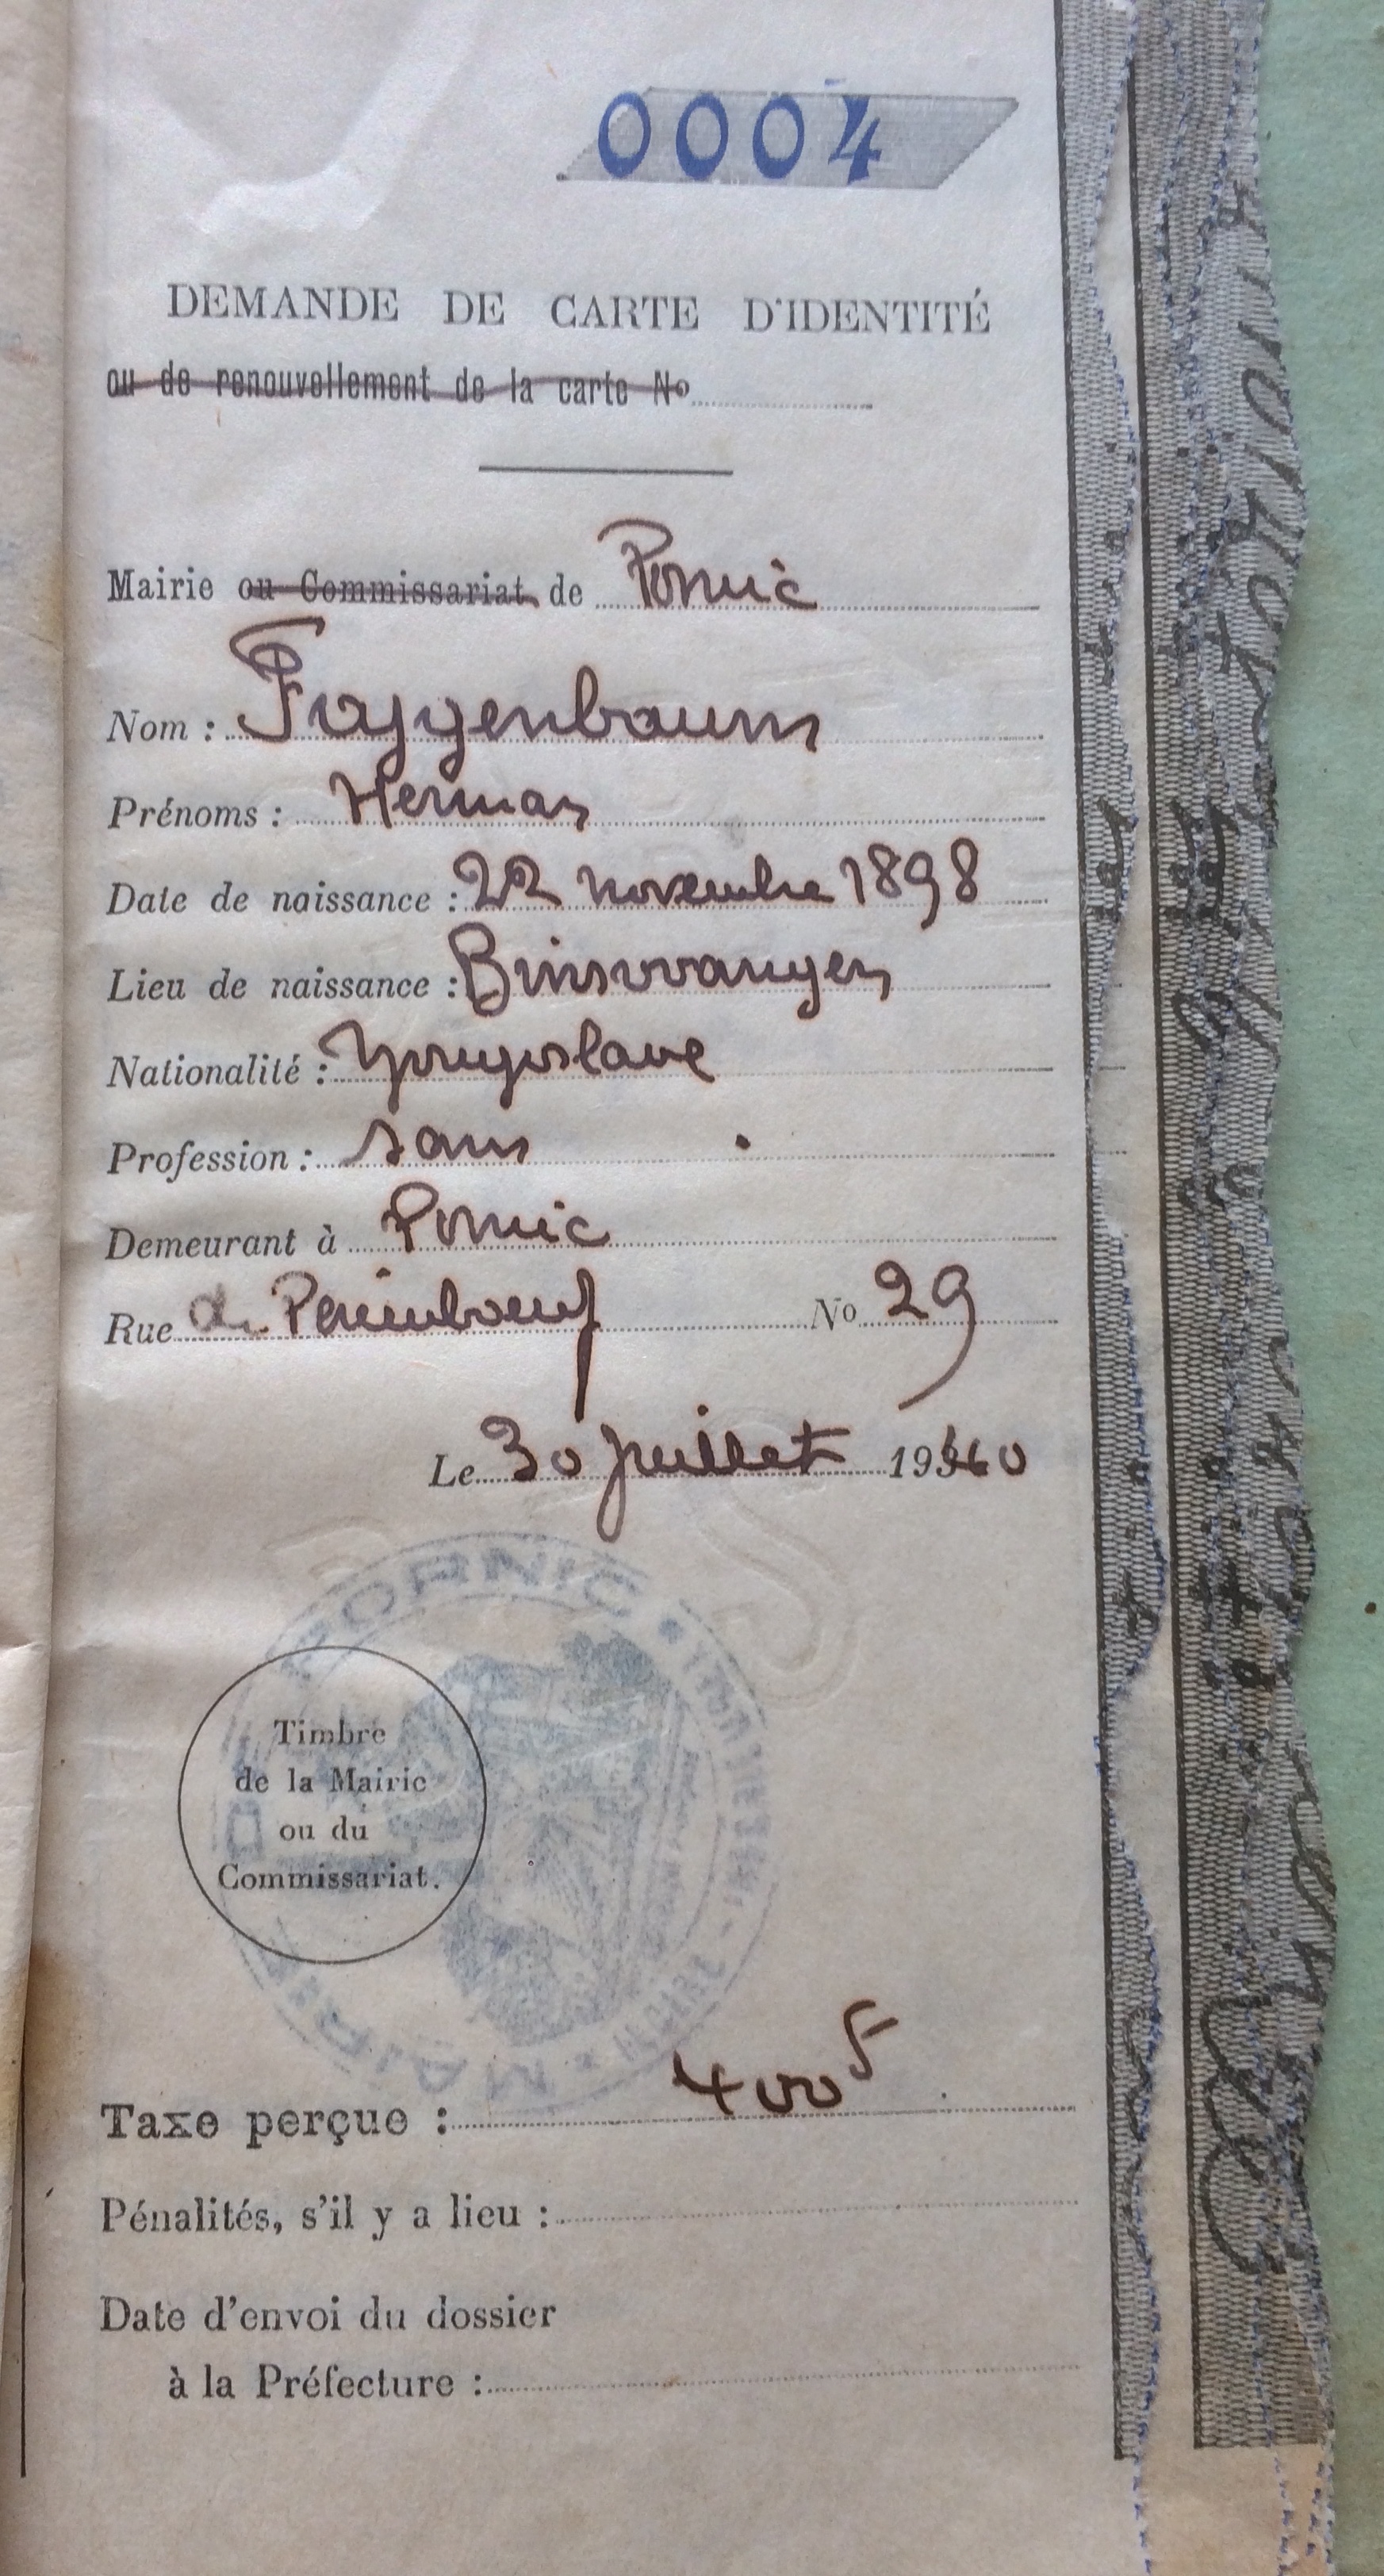 0004
DEMANDE DE CARTE D'IDENTITÉ
ou de renouvellement de la carte No
Mairie ou Commissariat de Pornic
Nom : Faggenbaum
Prénoms : Herman
Date de naissance : 22 novembre 1898
Lieu de naissance : Binswangen
Nationalité : Yougoslave
Profession : sans
Demeurant à Pornic
Rue de Perimboeuf No 29
Le 30 juillet 1940
PORNIC
Timbre
de la Mairie
ou du
Commissariat.
MAIRIE
LOIRE-INFRE
Taxe perçue : 400 F
Pénalités, s'il y a lieu :
Date d'envoi du dossier
à la Préfecture :